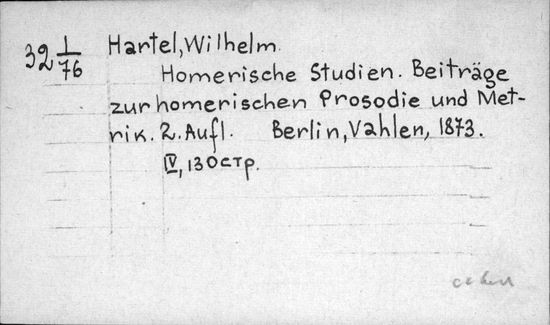 32 1/76 Hartel, Wilhelm.
Homerische Studien. Beiträge
zur homerischen Prosodie und Met-
rik. 2. Aufl. Berlin, Vahlen, 1873.
IV, 130 стр.